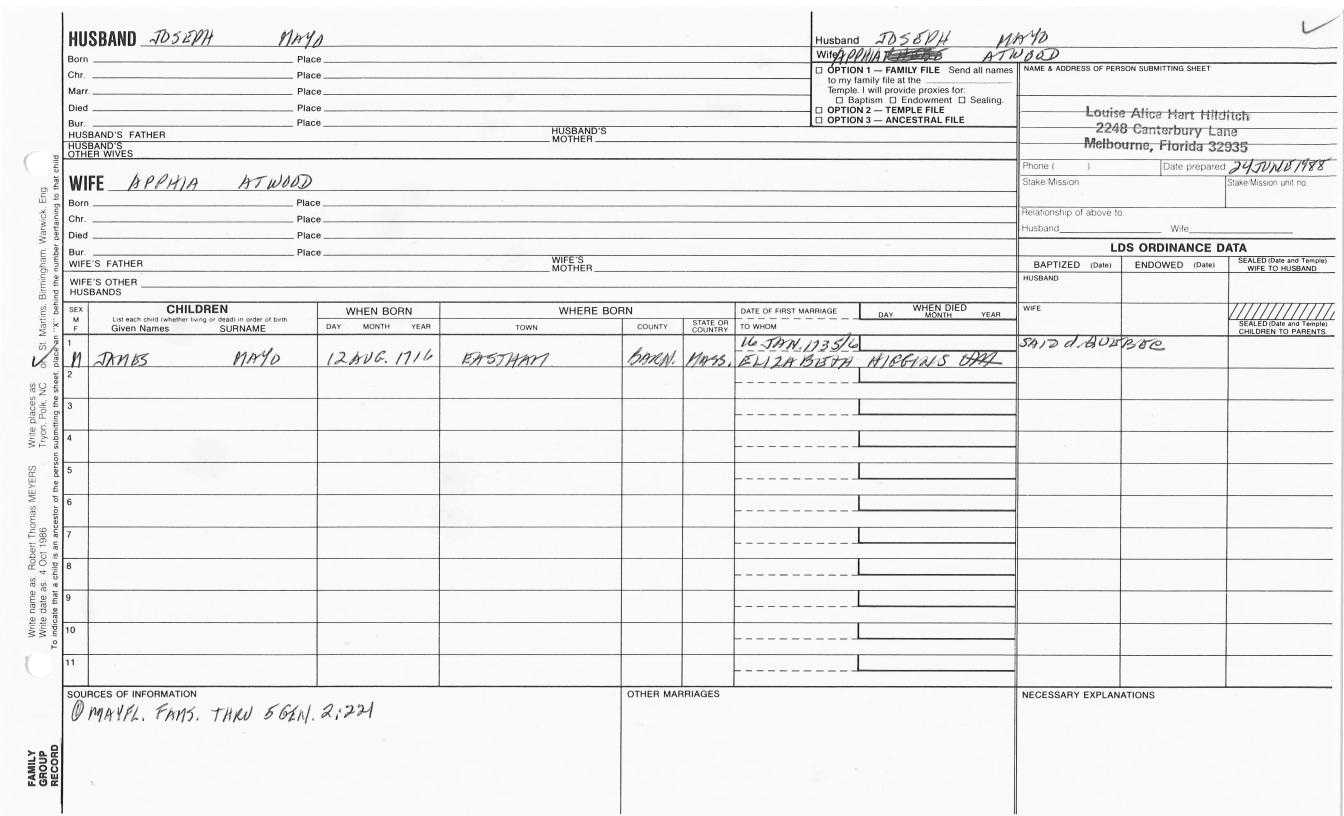 HUSBAND JOSEPH MAYO
Born Place
Chr. Place
Marr. Place
Died Place
Bur. Place
HUSBAND'S FATHER HUSBAND'S MOTHER
HUSBAND'S OTHER WIVES
Husband JOSEPH MAYO
Wife APPHIA ATWOOD
OPTION 1 — FAMILY FILE Send all names
to my family file at the
Temple. I will provide proxies for:
Baptism Endowment Sealing.
OPTION 2 — TEMPLE FILE
OPTION 3 — ANCESTRAL FILE
NAME & ADDRESS OF PERSON SUBMITTING SHEET
Louise Alice Hart Hilditch
2248 Canterbury Lane
Melbourne, Florida 32935
Phone ( ) Date prepared 24 JUNE 1988
Stake/Mission Stake/Mission unit no.
Relationship of above to:
Husband Wife
WIFE APPHIA ATWOOD
Born Place
Chr. Place
Died Place
Bur. Place
WIFE'S FATHER WIFE'S MOTHER
WIFE'S OTHER HUSBANDS
LDS ORDINANCE DATA
BAPTIZED (Date) ENDOWED (Date) SEALED (Date and Temple) WIFE TO HUSBAND
HUSBAND
WIFE
SEALED (Date and Temple) CHILDREN TO PARENTS
SEX M F
CHILDREN
List each child (whether living or dead) in order of birth
Given Names SURNAME
WHEN BORN
DAY MONTH YEAR
WHERE BORN
TOWN COUNTY STATE OR COUNTRY
DATE OF FIRST MARRIAGE
TO WHOM
WHEN DIED
DAY MONTH YEAR
1 16 JAN. 1735/6 SAID d. QUEBEC
M JAMES MAYO 12 AUG. 1716 EASTHAM BARN. MASS. ELIZABETH HIGGINS
2
3
4
5
6
7
8
9
10
11
SOURCES OF INFORMATION
① MAYFL. FAMS. THRU 5 GEN. 2:221
OTHER MARRIAGES
NECESSARY EXPLANATIONS
FAMILY GROUP RECORD
Write name as: Robert Thomas MEYERS Write places as: Tryon, Polk, NC or St. Martins, Birmingham, Warwick, Eng.
Write date as: 4 Oct 1986
To indicate that a child is an ancestor of the person submitting the sheet, place an "X" behind the number pertaining to that child